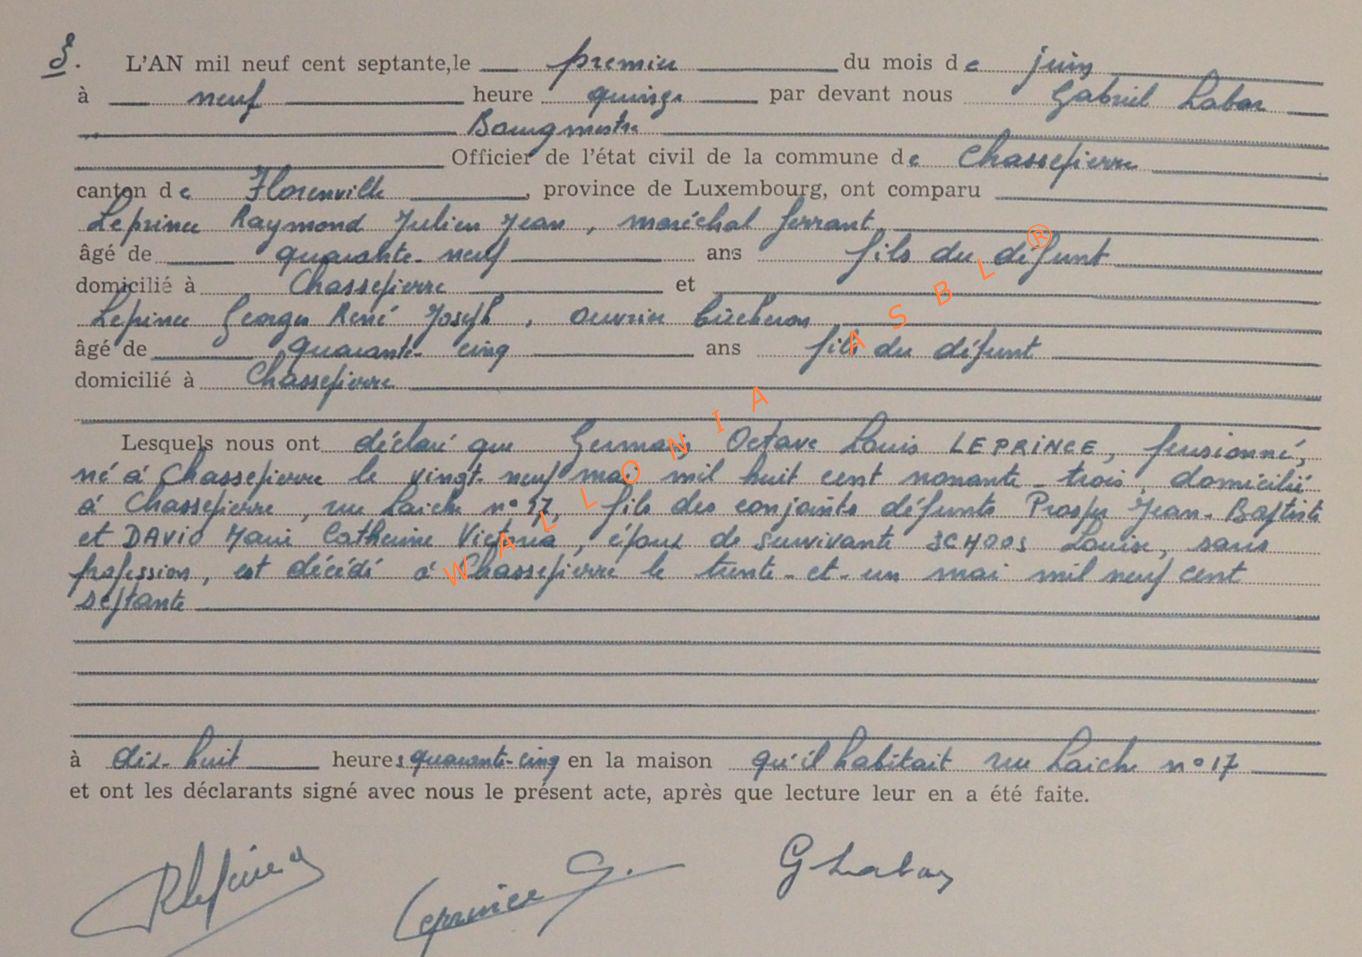 3. L'AN mil neuf cent septante, le premier du mois de juin
à neuf heure quinze par devant nous Gabriel Labar
Bourgmestre
Officier de l'état civil de la commune de Chassepierre
canton de Florenville, province de Luxembourg, ont comparu
Leprince Raymond Julien Jean, maréchal ferrant
âgé de quarante-neuf ans fils du défunt
domicilié à Chassepierre et
Leprince Georges René Joseph, ouvrier bûcheron
âgé de quarante-cinq ans fils du défunt
domicilié à Chassepierre
Lesquels nous ont déclaré que Germain Octave Louis LEPRINCE, pensionné,
né à Chassepierre le vingt-neuf mai mil huit cent nonante-trois, domicilié
à Chassepierre, rue Laiche n° 17, fils des conjoints défunts Prosper Jean-Baptiste
et DAVID Marie Catherine Victoria, époux de survivante SCHOOS Louise, sans
profession, est décédé à Chassepierre le trente-et-un mai mil neuf cent
septante
à dix-huit heures quarante-cinq en la maison qu'il habitait rue Laiche n° 17
et ont les déclarants signé avec nous le présent acte, après que lecture leur en a été faite.
RLeprince Leprince G. GLabar
WALLONIA ASBL®